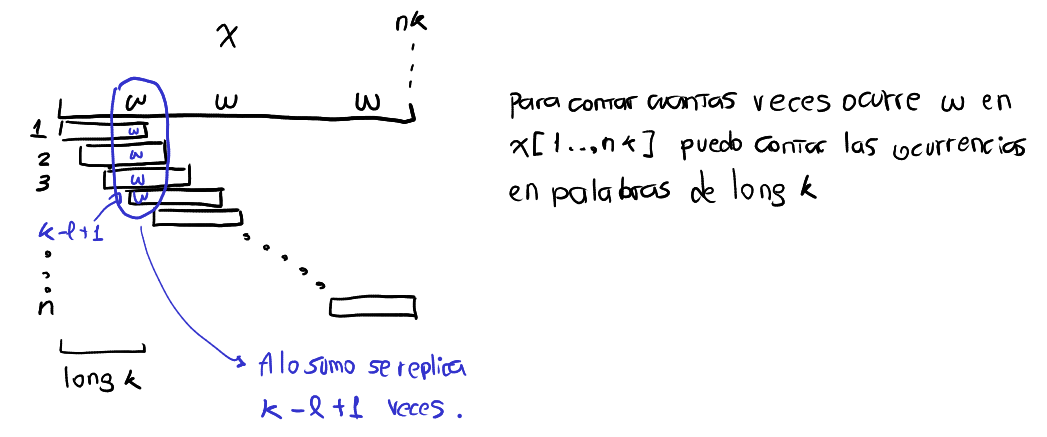 x
nk
w w w
1 w
2 w
3 w
w
k-l+1
n
long k
A lo sumo se replica
k-l+1 veces.
Para contar cuantas veces ocurre w en
x[1..,nk] puedo contar las ocurrencias
en palabras de long k